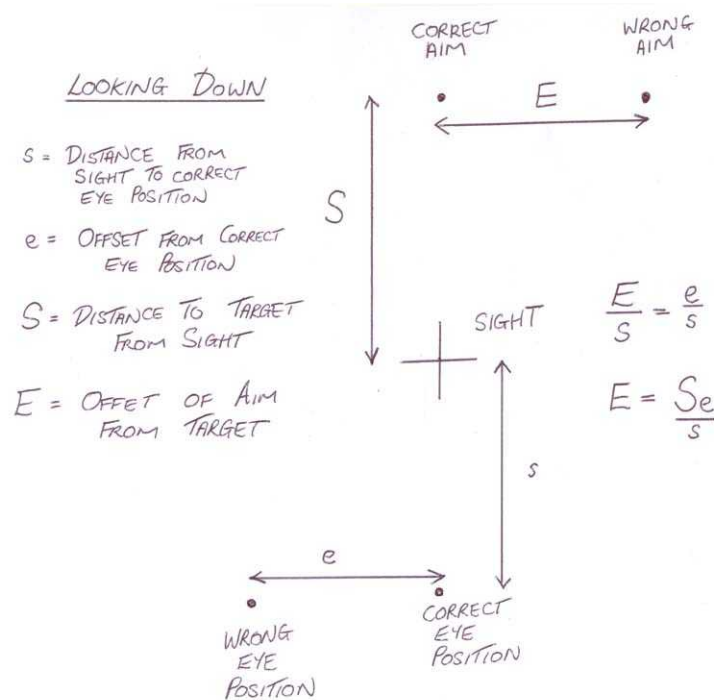 CORRECT
AIM
WRONG
AIM
LOOKING DOWN
E
s = DISTANCE FROM
SIGHT TO CORRECT
EYE POSITION
S
e = OFFSET FROM CORRECT
EYE POSITION
S = DISTANCE TO TARGET
FROM SIGHT
SIGHT
E/S = e/s
E = OFFET OF AIM
FROM TARGET
E = Se/s
s
e
WRONG
EYE
POSITION
CORRECT
EYE
POSITION